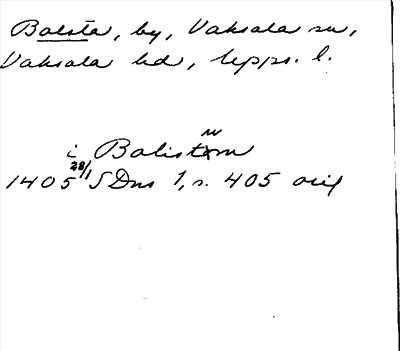 Balsta, by, Vaksala sn,
Vaksala hd, Upps. l.
i Balistom
1405 28/1 SDns 1, s. 405 orig